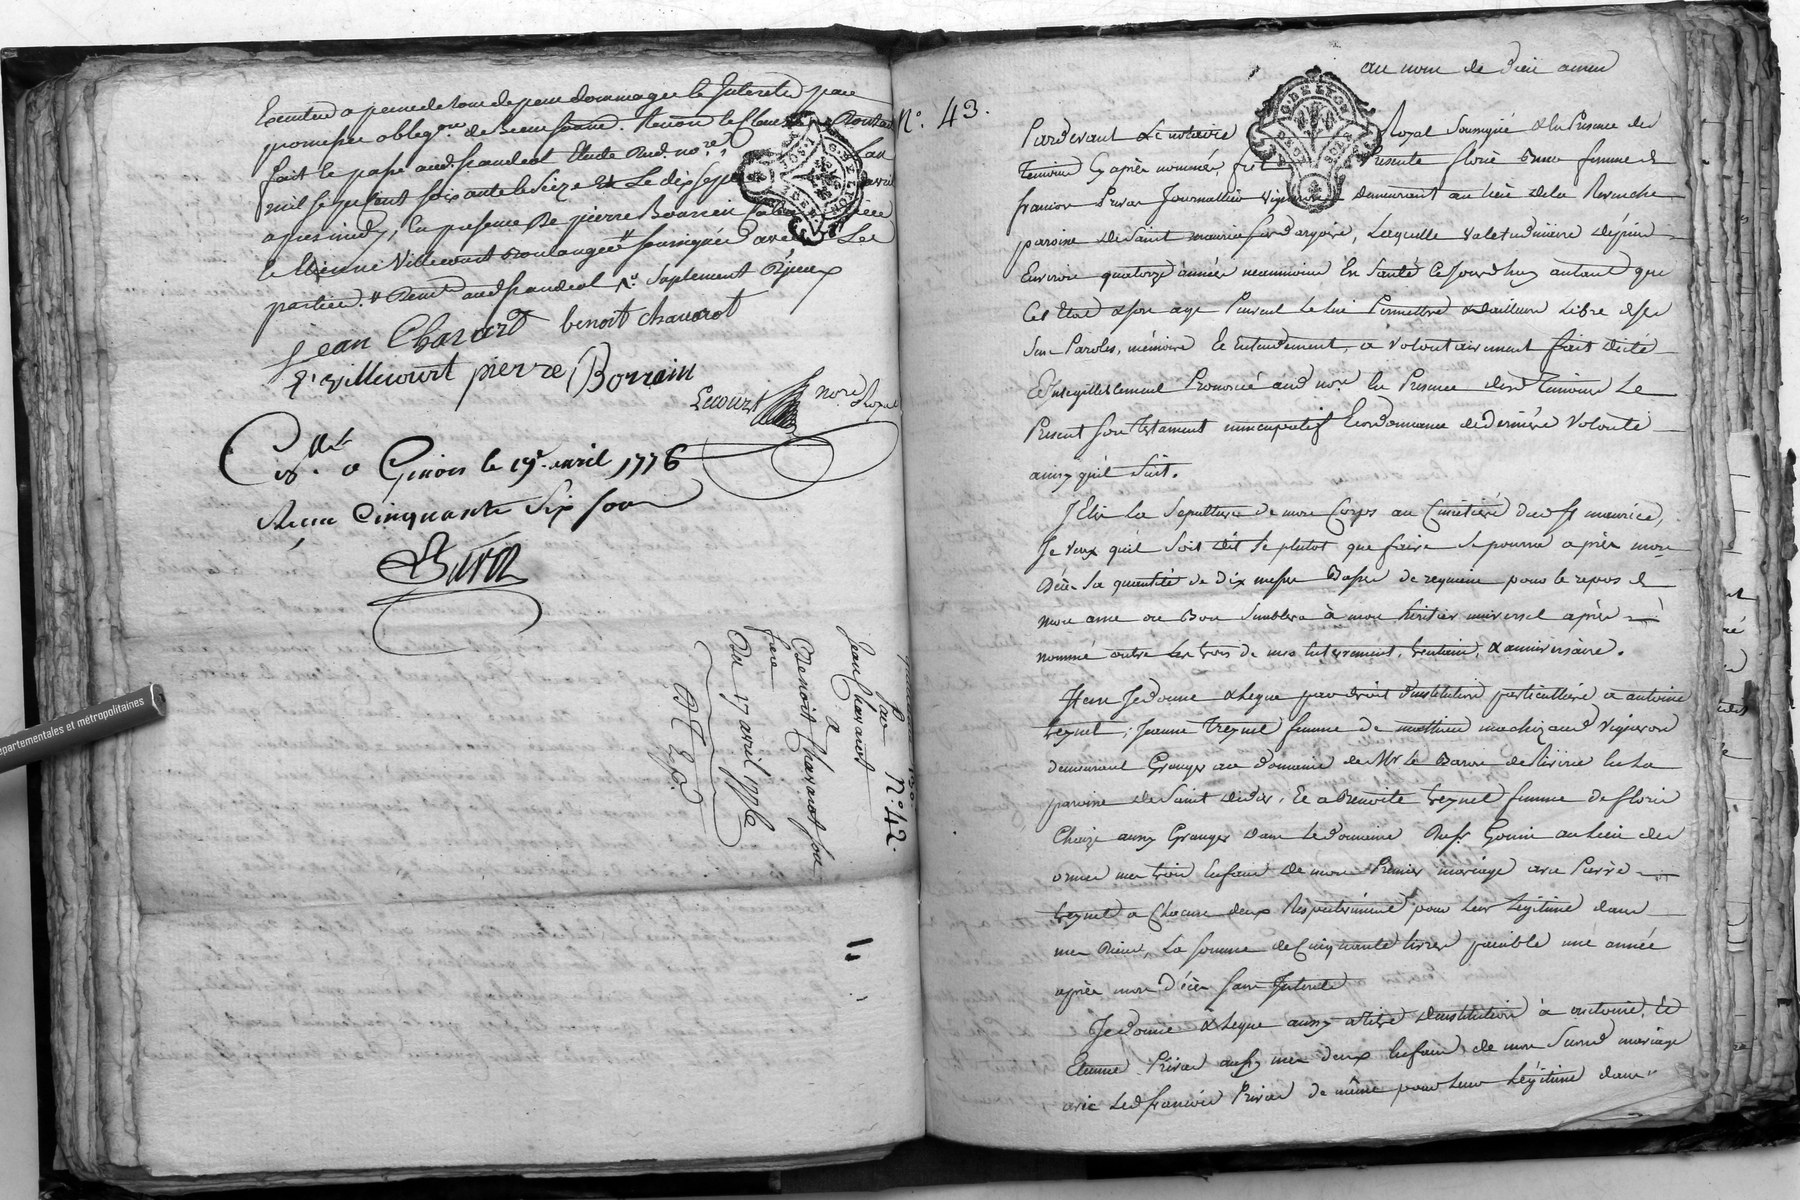 Executer a peine de tous depens dommages & Interets par
promesse obligon. de biens soumis. Renon. & Clause
fait & passé aud. fraudeol Etude dud. no.re
mil sept Cent soixante & Seize & Le dix sept avril
apres midy, En presence de pierre Bourrein
& Etienne Villecourt Boulanger soussignés avec Les
parties.
Jean Chavarot benoit chavarot
E. villecourt pierre Borrain
Lecourt no.re Royal
C.llé a Givors le 19e. avril 1776
Recu Cinquante Six sous
départementales et métropolitaines
N.o 42.
par
Jean Chavarot
a
Benoit Chavarot son
frere
Du 17 avril 1776
N.o 43.
G. DE LYON
au nom de Dieu amen
Pardevant Le notaire Royal Soussigné & En Presence des
Temoins Cy après nommés, fut Presente florie femme de
francois Privas Journallier Vigneron demeurant au lieu de la Revuche
paroisse de Saint maurice sur dargoire, Laquelle valetudinaire depuis
Environ quatorze années neanmoins En Santé Cejourdhuy autant que
Cet Etat & son age Peuvent Le lui Permettre & dailleurs Libre de ses
Sens Paroles, mémoire & Entendement, a volontairement fait dicté
& Inteligiblement Prononcé aud. no.re En Presence desd. Temoins Le
Present son Testament nuncupatif & ordonnance de derniére Volonté
ainsy quil Suit.
J'Elis La Sepulture de mon Corps au Cimetiére dud. St maurice,
Je veux quil Soit dit le plutot que faire se pourra après mon
Décès La quantité de dix messes Basses de requiem pour le repos de
mon ame ou Bon Semblera à mon heritier universel après
nommé outre Les trois de mes Enterrement, trentain, & anniversaire.
Item Je donne & Legue par droit d'institution particulliére a antoine
treynet, Jeanne treynet femme de matthieu machizaud Vigneron
demeurant Granger au domaine de Mr le Baron de Riverie En La
paroisse de Saint didier, Et a Benoite treynet femme de florie
Chaize aussy Granger dans le domaine du Sr. Gonin au lieu des
ormes mes trois Enfans de mon Premier mariage avec Pierre
treynet a Chacun deux Respectivement pour Leur Légitime dans
mes Biens, La somme de Cinquante livres paiable une année
après mon décès sans Interets
Je donne & Legue aussy a titre d'institution à antoine, &
Etienne Privas aussy mes deux Enfans de mon Second mariage
avec Led. francois Privas de même pour Leur Légitime dans